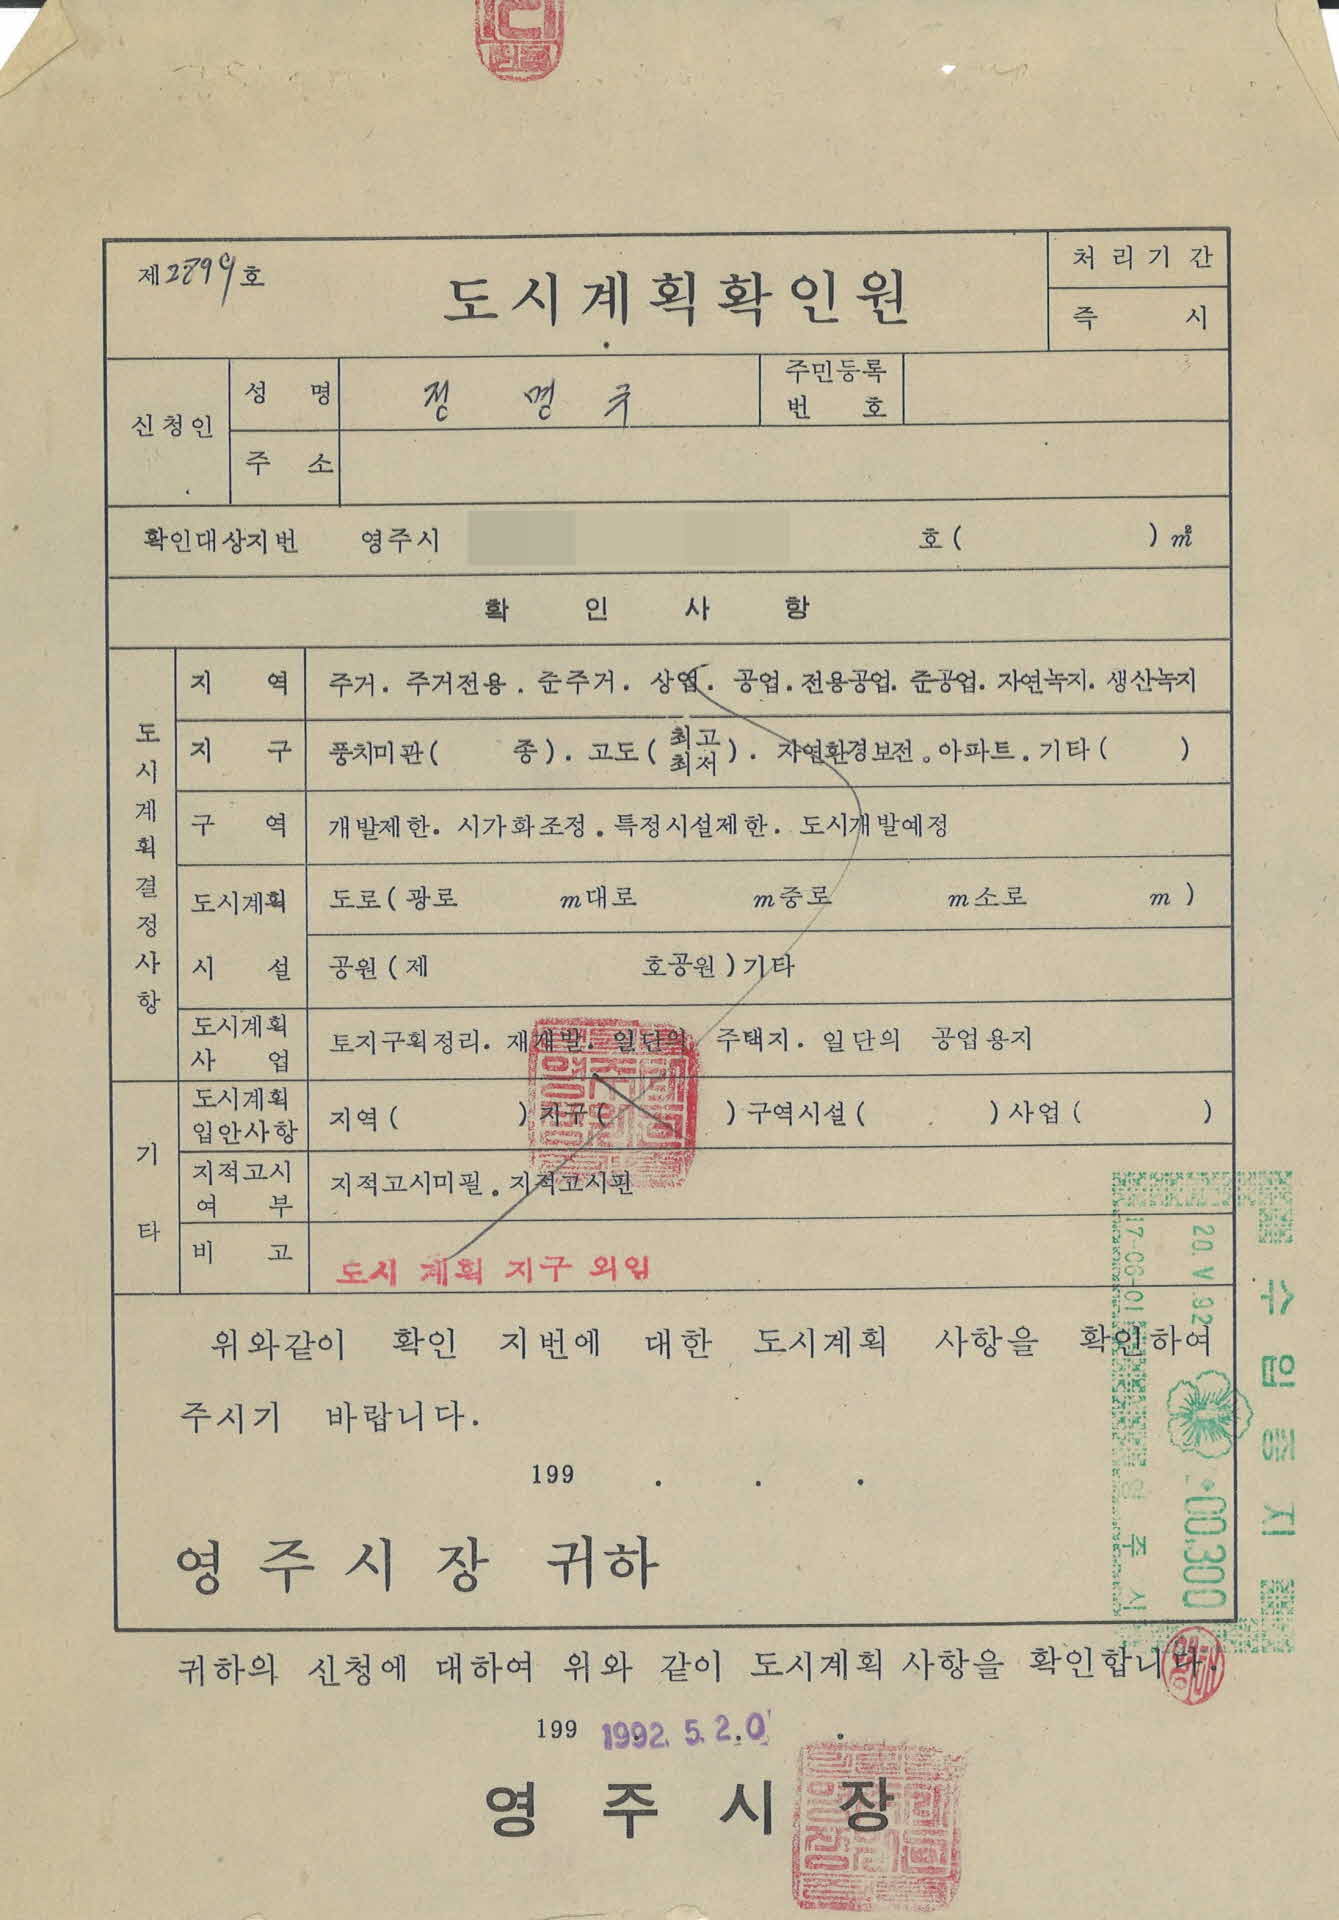 제2899호
도시계획확인원
처리기간
즉 시
신청인
성 명
정 명 국
주민등록
번 호
주 소
확인대상지번 영주시 호 ( ) ㎡
확 인 사 항
도시계획결정사항
지 역
주거. 주거전용. 준주거. 상업. 공업. 전용공업. 준공업. 자연녹지. 생산녹지
지 구
풍치미관( 종). 고도(최고 최저). 자연환경보전. 아파트. 기타( )
구 역
개발제한. 시가화조정. 특정시설제한. 도시개발예정
도시계획
시 설
도로(광로 m대로 m중로 m소로 m)
공원(제 호공원)기타
도시계획
사 업
토지구획정리. 재개발. 일단의 주택지. 일단의 공업용지
기 타
도시계획
입안사항
지역( )지구( )구역시설( )사업( )
지적고시
여 부
지적고시미필. 지적고시편
비 고
도시 계획 지구 외임
위와같이 확인 지번에 대한 도시계획 사항을 확인하여
주시기 바랍니다.
199 . . .
영주시장 귀하
수입증지
20. V. 92
17-06-01
00,300
영주시
귀하의 신청에 대하여 위와 같이 도시계획 사항을 확인합니다.
199 1992. 5. 2.0 .
영주시장